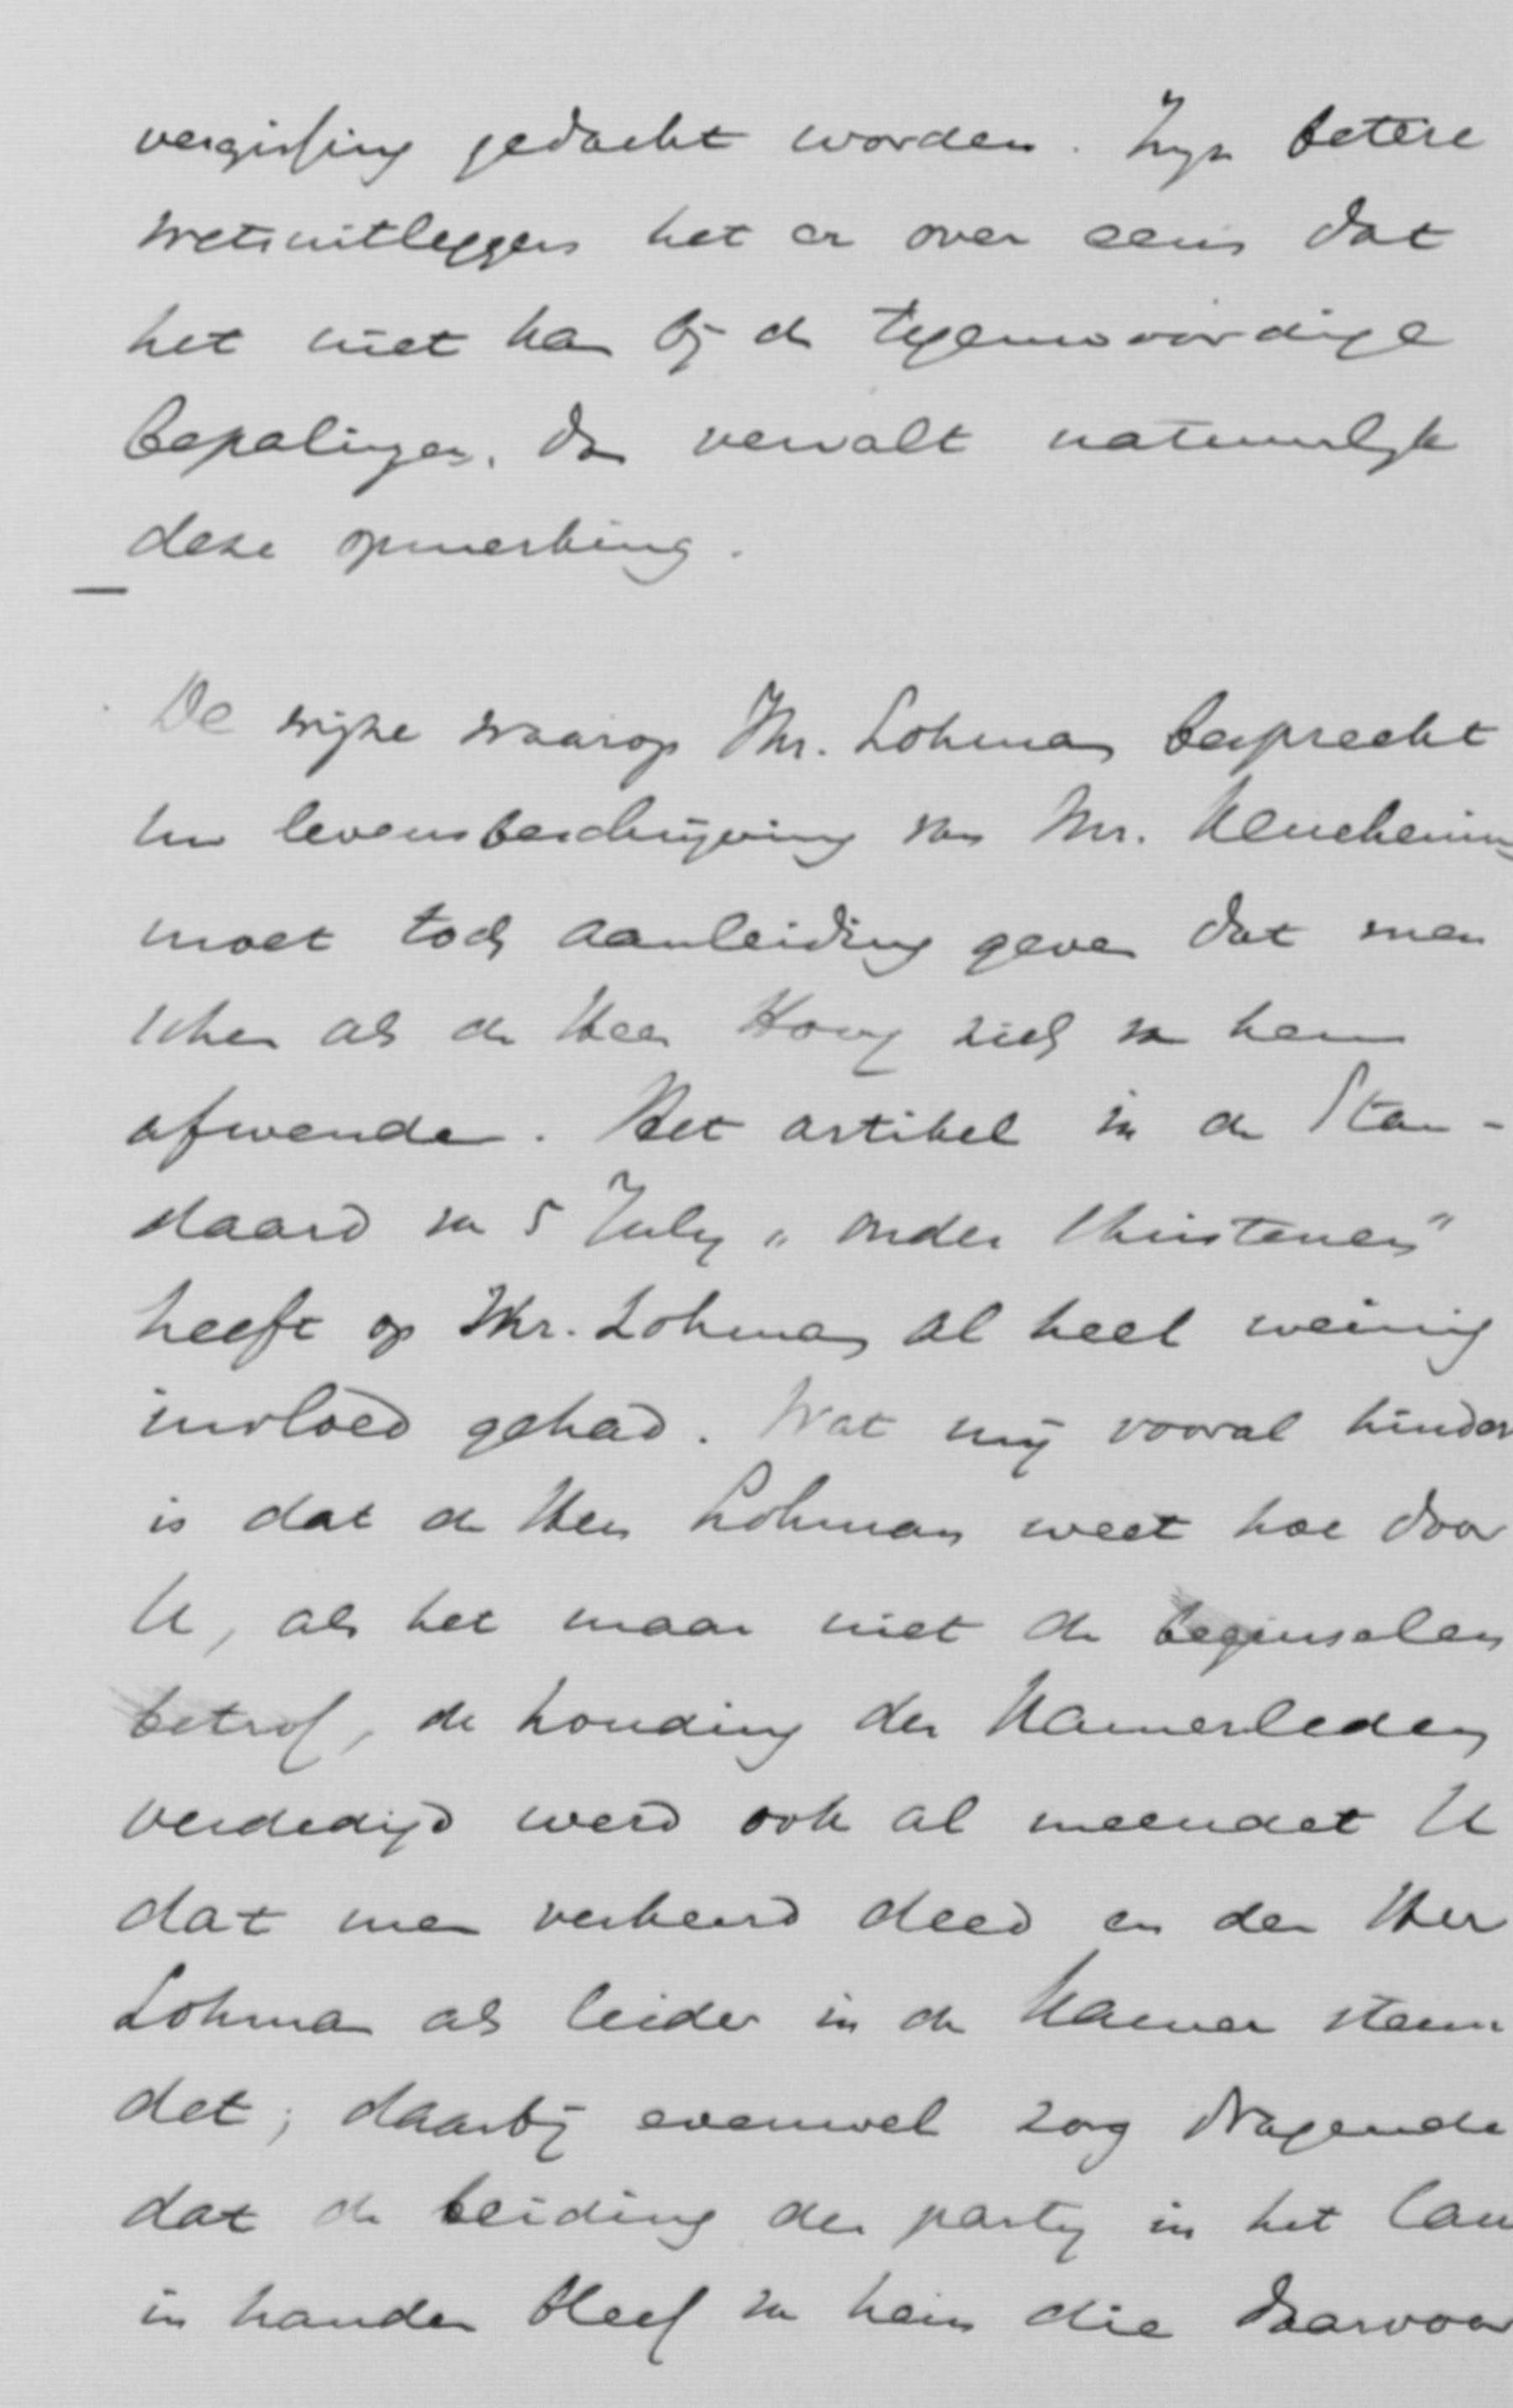 vergissing gedacht worden. Zijn betere
wetsuitleggers het er over eens dat
het niet kan bij de tegenwoordige
bepalingen, dan vervalt natuurlijk
deze opmerking.
De wijze waarop Jhr. Lohman bespreekt
Uw levensbeschrijving van Mr. Keuchenius
moet toch aanleiding geven dat men
schen als de Heer Hovy zich van hem
afwenden. Het artikel in de Stan-
daard van 5 July „onder Christenen"
heeft op Jhr. Lohman al heel weinig
invloed gehad. Wat mij vooral hindert
is dat de Heer Lohman weet hoe door
U, als het maar niet de beginselen
betrof, de houding der Kamerleden
verdedigd werd ook al meendet U
dat men verkeerd deed en den Heer
Lohman als leider in de Kamer steun
det; daarbij evenwel zorg dragende
dat de leiding der partij in het land
in handen bleef van hem die daarvoor